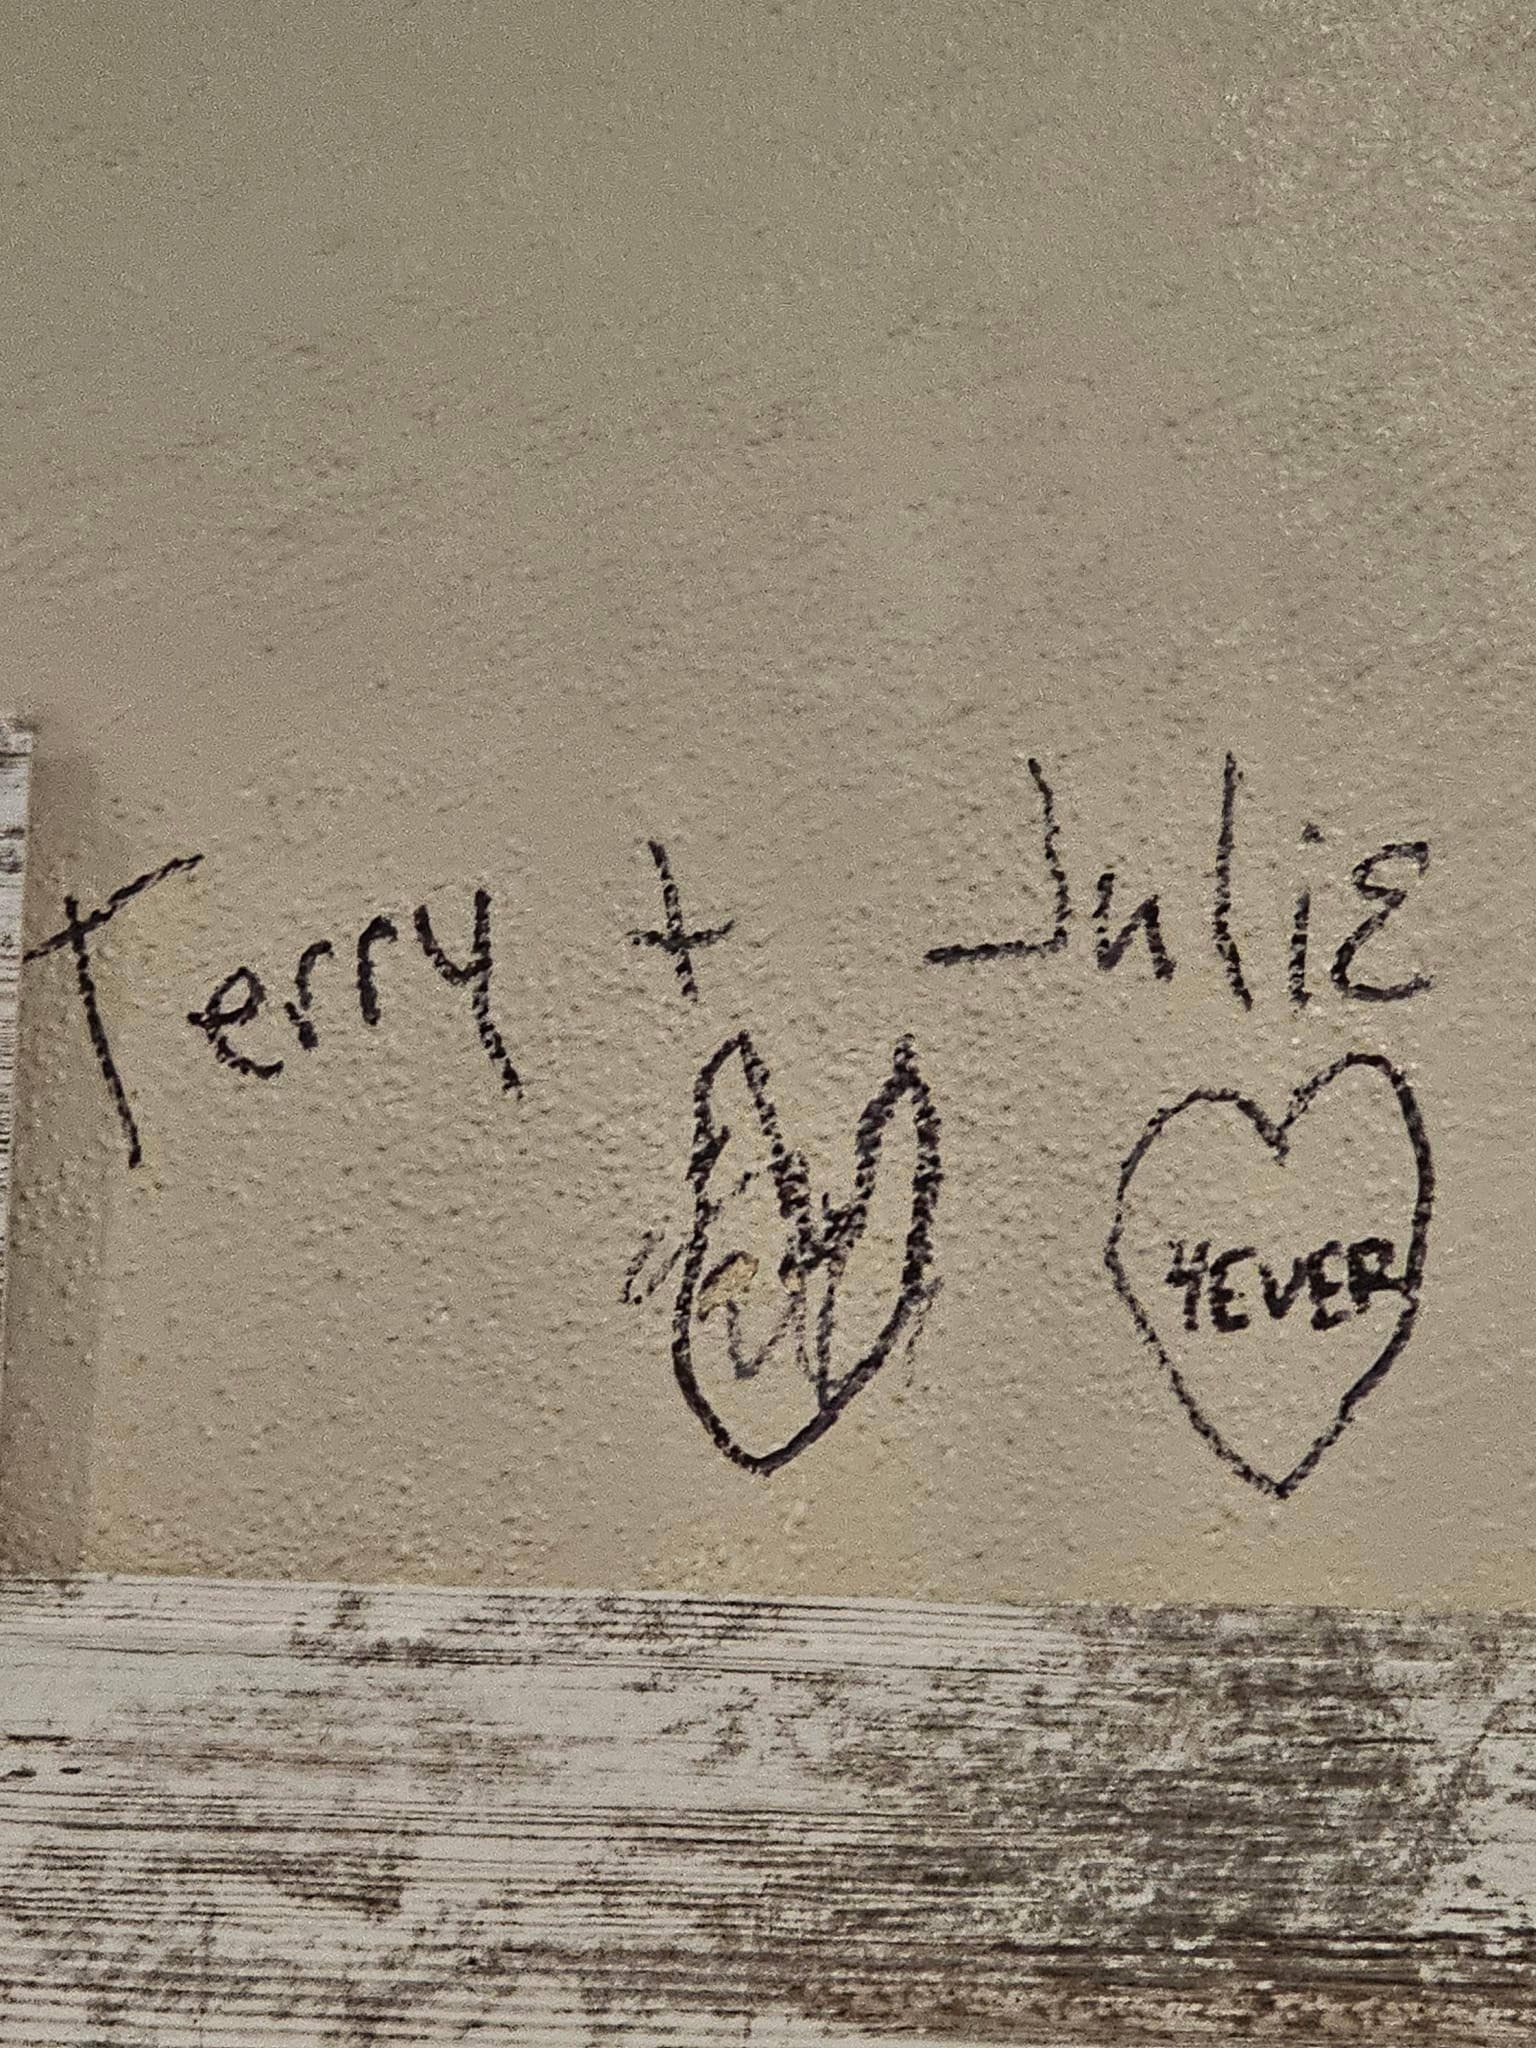 Terry + Julie
4EVER